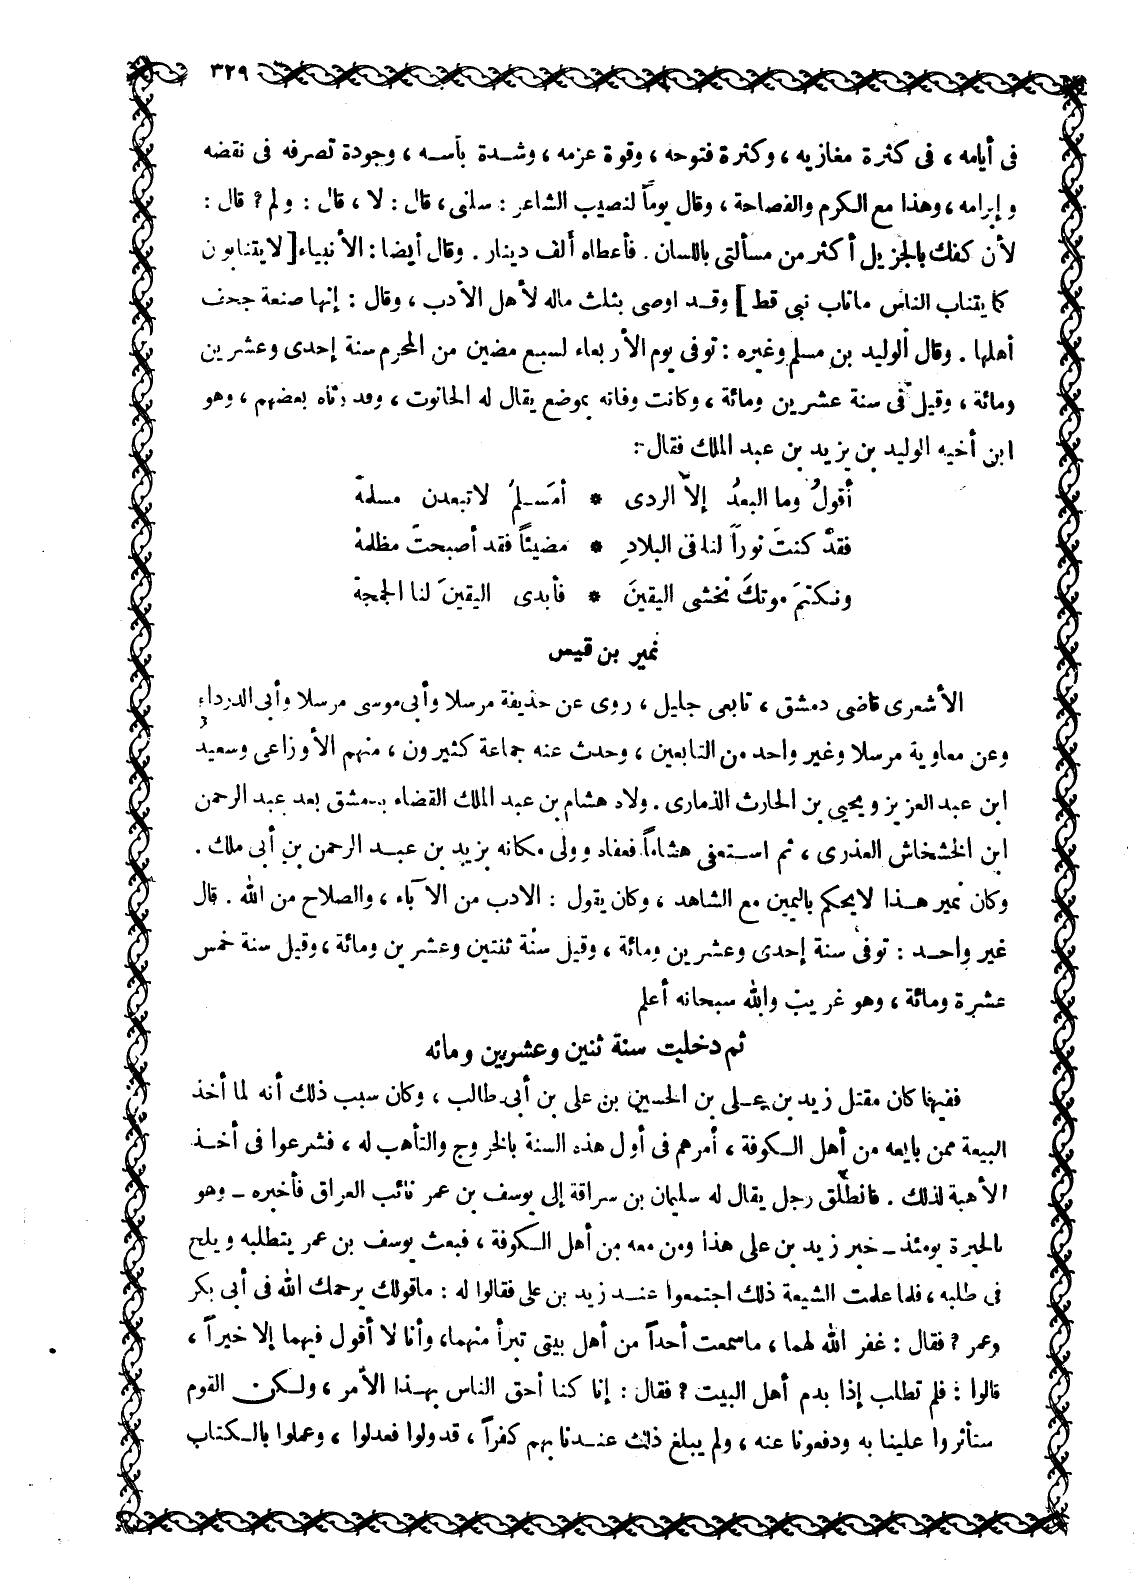 ٣٢٩
فى أيامه ، فى كثرة مغازيه ، وكثرة فتوحه ، وقوة عزمه ، وشـدة بأسـه ، وجودة تصرفه فى نقضه
وإبرامه ، وهذا مع الـكرم والفصاحة ، وقال يوماً لنصيب الشاعر : سلنى ، قال : لا ، قال : ولم ? قال :
لأن كفك بالجزيل أكثر من مسألتى باللسان . فأعطاه ألف دينار . وقال أيضا : الأنبياء [ لا يتنابون
كما يتناب الناس ماناب نبى قط ] وقـد اوصى بثلث ماله لأهل الأدب ، وقال : إنها صنعة جحف
أهلها . وقال الوليد بن مسلم وغيره : توفى يوم الأربعاء لسبع مضين من المحرم سنة إحدى وعشرين
ومائة ، وقيل فى سنة عشرين ومائة ، وكانت وفاته بموضع يقال له الحانوت ، وقد رثاه بعضهم ، وهو
ابن أخيه الوليد بن يزيد بن عبد الملك فقال :-
أقولُ وما البعدُ إلاّ الردى * أمَسـلمُ لا تبعدن مسلمة
فقدْ كنتَ نوراً لنا فى البلادِ * مضيئاً فقد أصبحتَ مظلمة
ونكتمَ موتكَ نخشى اليقينَ * فأبدى اليقينَ لنا الجمجة
نمير بن قيس
الأشعرى قاضى دمشق ، تابعى جليل ، روى عن حذيفة مرسلا وأبى موسى مرسلا وأبى الدرداء
وعن معاوية مرسلا وغير واحد من التابعين ، وحدث عنه جماعة كثيرون ، منهم الأوزاعى وسعيد
ابن عبد العزيز ويحيى بن الحارث الذمارى . ولاه هشام بن عبد الملك القضاء بدمشق بعد عبد الرحمن
ابن الخشخاش العذرى ، ثم اسـتعفى هشاماً فعفاه وولى مكانه يزيد بن عبـد الرحمن بن أبى ملك .
وكان نمير هـذا لا يحكم باليمين مع الشاهد ، وكان يقول : الادب من الآباء ، والصلاح من الله . قال
غير واحـد : توفى سنة إحدى وعشرين ومائة ، وقيل سنة ثنتين وعشرين ومائة ، وقيل سنة خمس
عشرة ومائة ، وهو غريب والله سبحانه أعلم
ثم دخلت سنة ثنتين وعشرين ومائه
ففيها كان مقتل زيد بن عـلى بن الحسين بن على بن أبى طالب ، وكان سبب ذلك أنه لما أخذ
البيعة ممن بايعه من أهل الـكوفة ، أمرهم فى أول هذه السنة بالخروج والتأهب له ، فشرعوا فى أخـذ
الأهبة لذلك . فانطلق رجل يقال له سليمان بن سراقة إلى يوسف بن عمر نائب العراق فأخبره ـ وهو
بالحيرة يومئذ ـ خبر زيد بن على هذا ومن معه من أهل الـكوفة ، فبعث يوسف بن عمر يتطلبه ويلح
فى طلبه ، فلما علمت الشيعة ذلك اجتمعوا عنـد زيد بن على فقالوا له : ماقولك يرحمك الله فى أبى بكر
وعمر ? فقال : غفر الله لهما ، ماسمعت أحداً من أهل بيتى تبرأ منهما، وأنا لا أقول فيهما إلا خيراً ،
قالوا : فلم تطلب إذا بدم أهل البيت ? فقال : إنا كنا أحق الناس بهـذا الأمر ، ولـكن القوم
ستأثروا علينا به ودفعونا عنه ، ولم يبلغ ذلك عنـدنا بهم كفراً ، قد ولوا فعدلوا ، وعملوا بالـكتاب